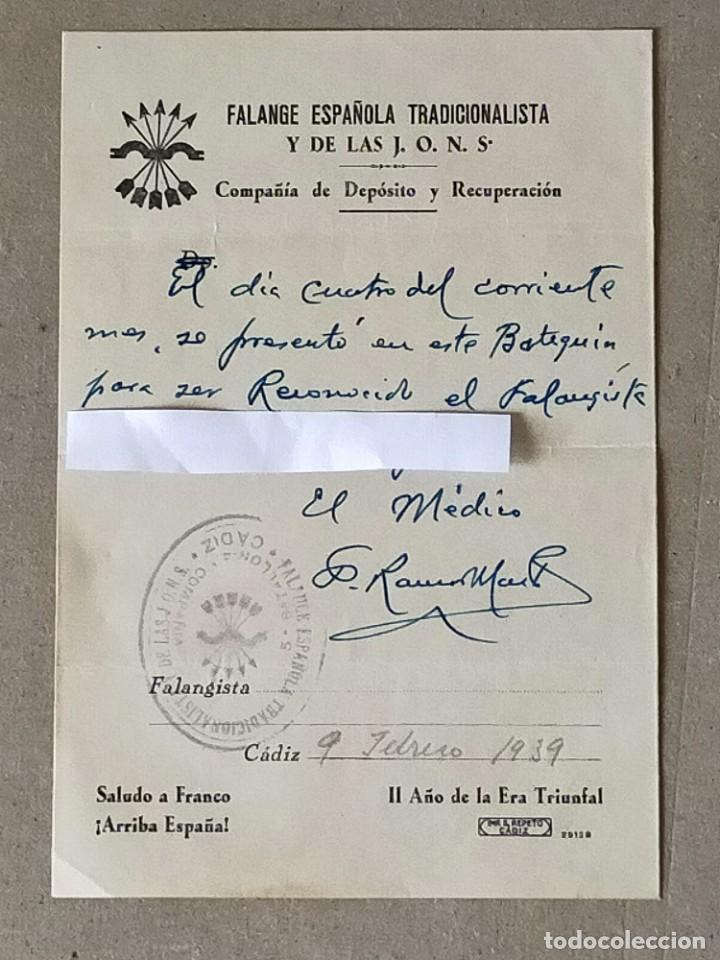 FALANGE ESPAÑOLA TRADICIONALISTA
Y DE LAS J. O. N. S.
Compañía de Depósito y Recuperación
El día cuatro del corriente
mes, se presentó en este Botequín
para ser Reconocido el Falangista
El Médico
FALANGE ESPAÑOLA TRADICIONALISTA DE LAS J.O.N.S.
CADIZ
Falangista
Cádiz 9 Febrero 1939
Saludo a Franco
¡Arriba España!
II Año de la Era Triunfal
IMP. S. REPETO
CÁDIZ
todocoleccion